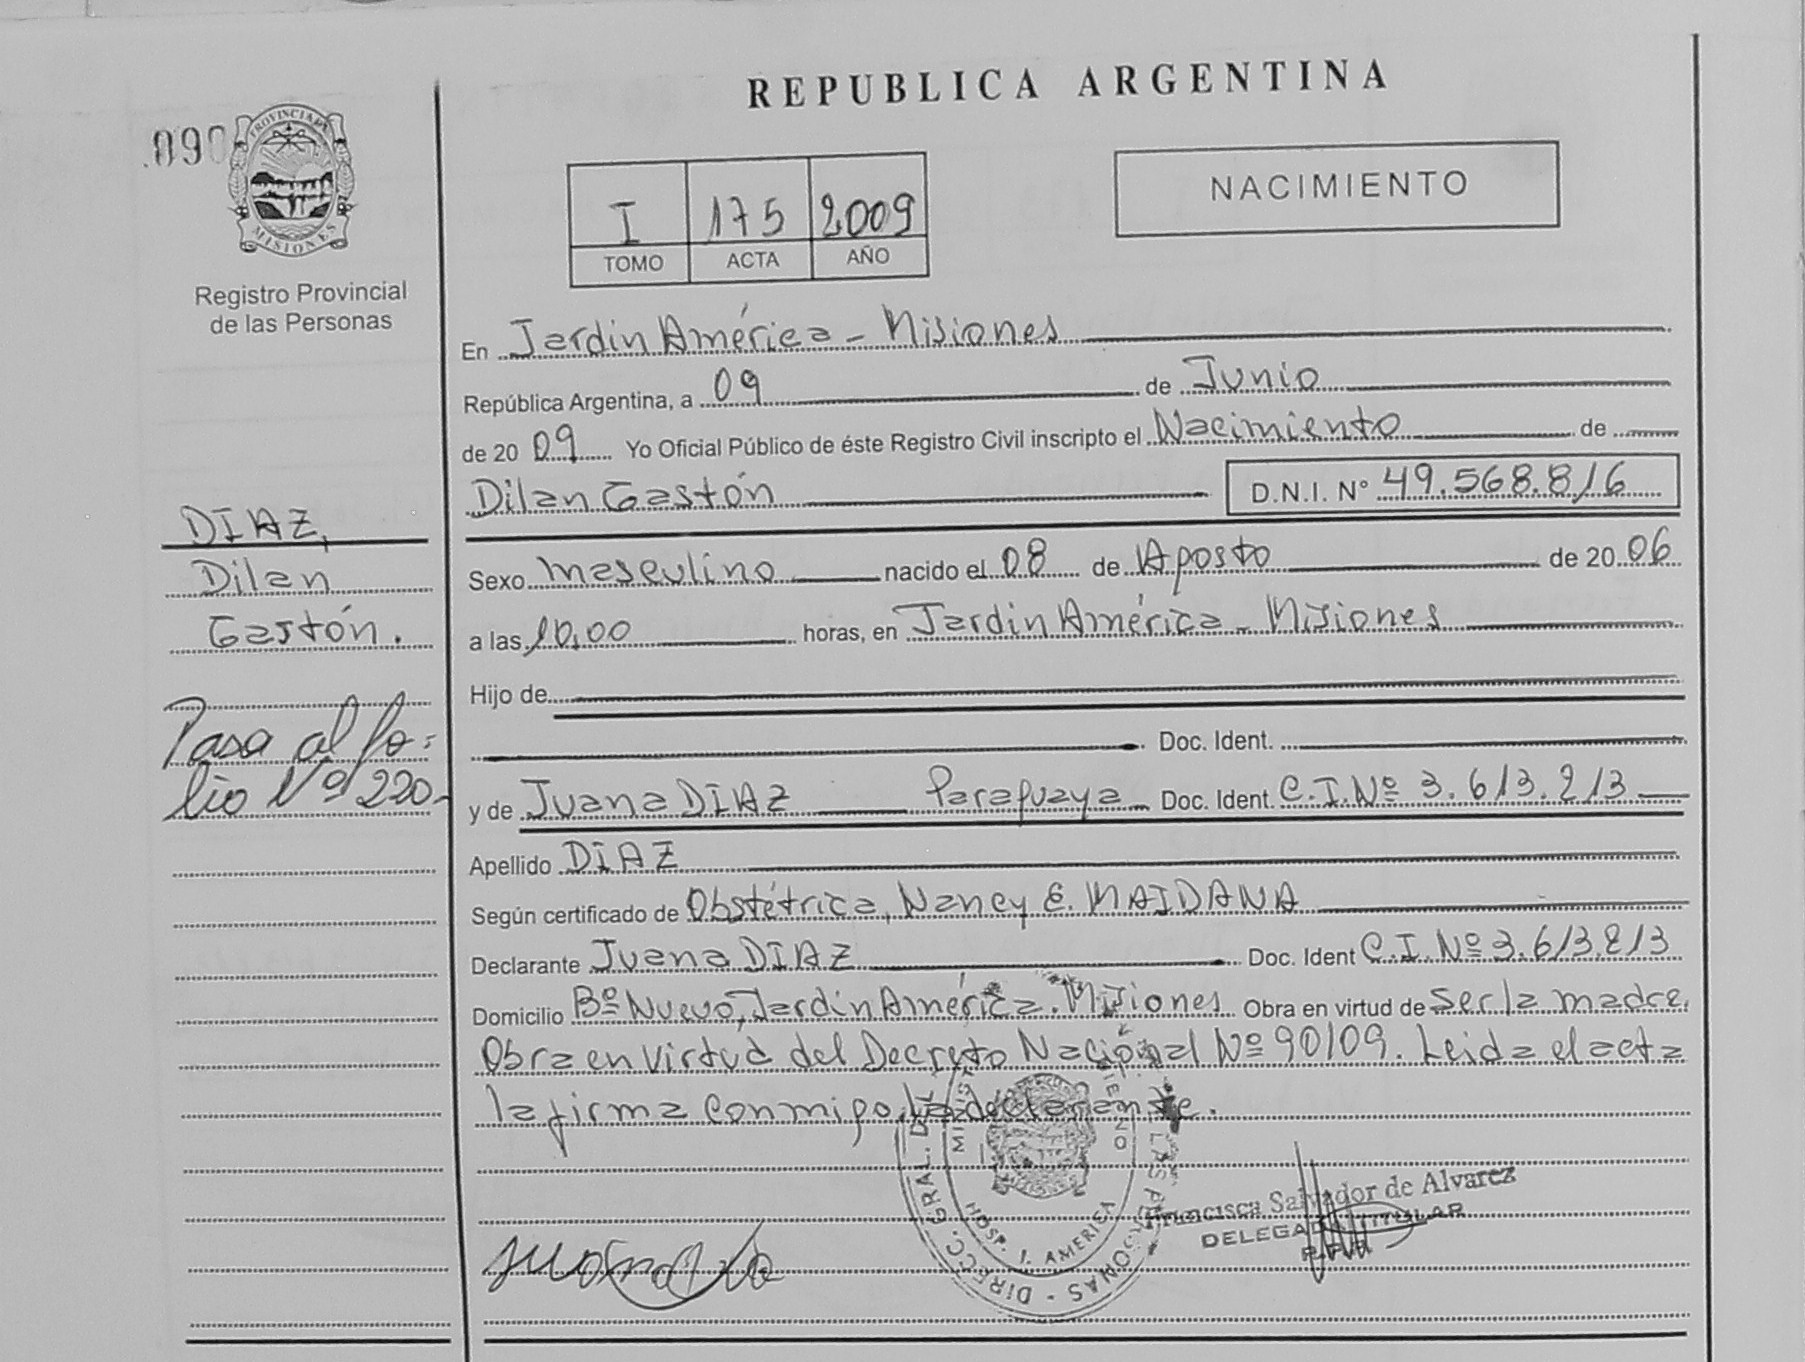 REPUBLICA ARGENTINA
090
PROVINCIA DE
MISIONES
Registro Provincial
de las Personas
I 175 2009
TOMO ACTA AÑO
NACIMIENTO
En Jardín América - Misiones
República Argentina, a 09 de Junio
de 2009 Yo Oficial Público de éste Registro Civil inscripto el Nacimiento de
Dilan Gastón D.N.I. Nº 49.568.816
DIAZ,
Dilan
Gastón.
Pasa al fo=
lio Nº 220.-
Sexo masculino nacido el 08 de Agosto de 2006
a las 10,00 horas, en Jardín América - Misiones
Hijo de
Doc. Ident.
y de Juana DIAZ Paraguaya Doc. Ident. C.I. Nº 3.613.213
Apellido DIAZ
Según certificado de Obstétrica, Nancy E. MAIDANA
Declarante Juana DIAZ Doc. Ident C.I. Nº 3.613.213
Domicilio Bº Nuevo, Jardín América. Misiones Obra en virtud de ser la madre.
Obra en virtud del Decreto Nacional Nº 90/09. Leida el acta
la firma conmigo la declarante.
DIRECC. GRAL. DEL
LAS PERSONAS
HOSP. J. AMERICA
Francisca Salvador de Alvarez
DELEGADA TITULAR
R.P.P.